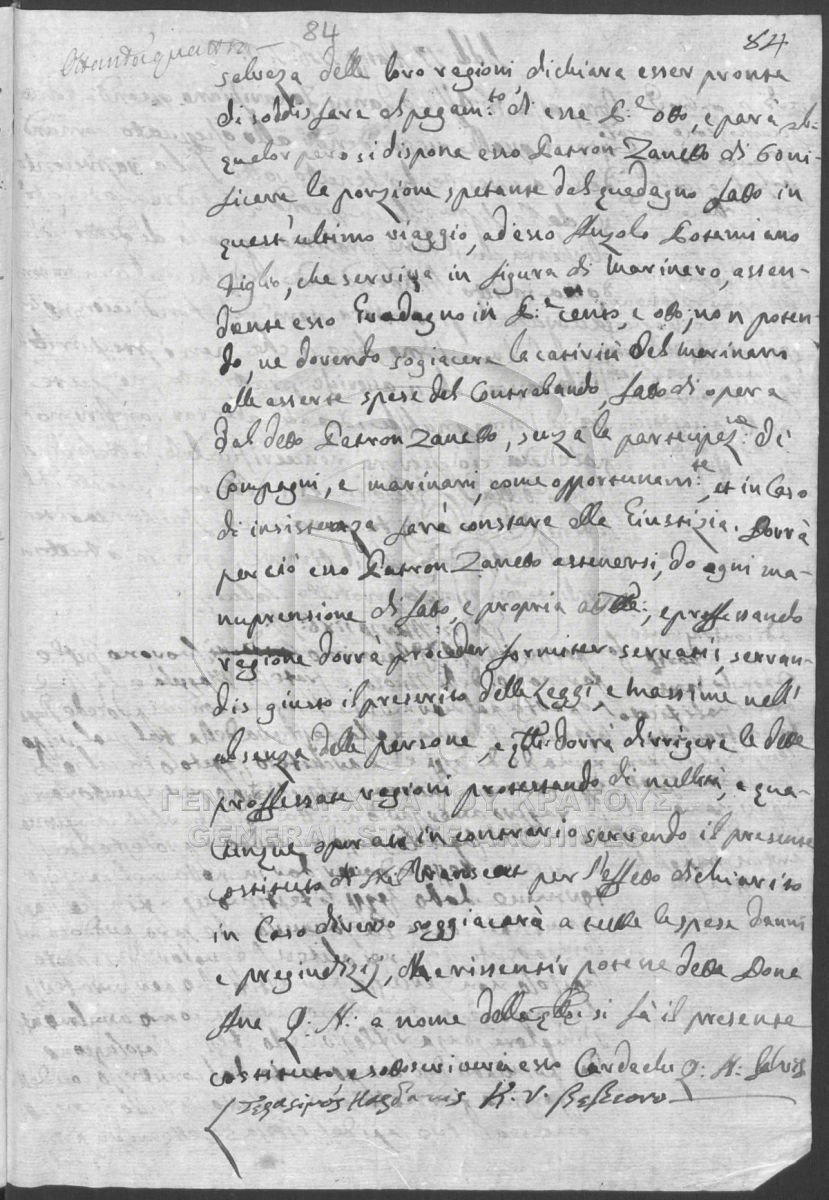 84
84
Ottantaquattro
salveza delle loro ragioni, dichiara esser pronta
di soddisfare al pagam:to di esse L:e otto, e parà
qualor però si dispona esso Patron Zanetto di boni-
ficare la porzione spetante dal guadagno fatto in
quest'ultimo viaggio, ad esso Anzolo Potamiano
figlio, che serviva in figura di marinaro, assen-
dente esso Guadagno in L:e cento, e otto, non poten-
do, ne dovendo sogiacere la del marinaro
alle asserte spese del Contrabando, fatto di opera
dal detto Patron Zanetto, senza la partecipaz:ne di
Compagni, e marinari, come opportunam:te, et in Caso
di insistenza farà constare alla Giustizia. Dovrà
perciò esso Patron Zanetto astenersi, da ogni ma-
numprensione di fatto, e propria, e proffessando
ragione dovrà proceder formiter servatis, servan-
dis giusto il prescrito delle Leggi, e massime nell'
absenza delle persone, e dovrà dirrigere le dette
proffessate ragioni protestando di nullità, a qua-
lunque operate in contrario servendo il presente
costituto per l'effetto dichiarito
in Caso diverso soggiacerà a tutte le spese danni
e pregiudizij, che rissentir potesse detta Dona
Ana q: N: a nome della qle si fà il presente
costituto, e sottoscriverà esso Cardachi q: N: